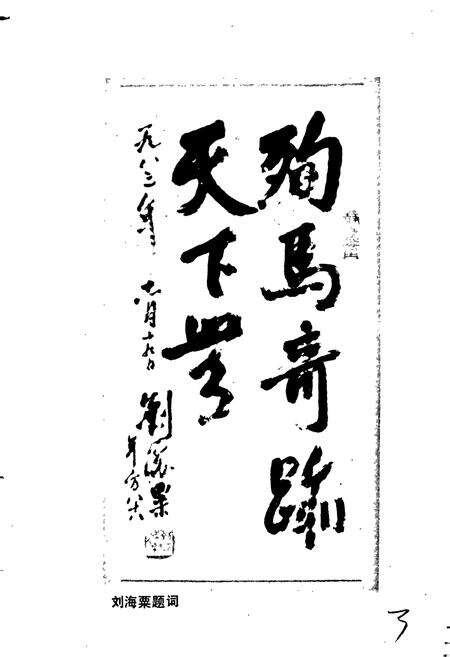 殉馬奇跡
天下
一九八三年 月十九日
劉海粟
年方八八
刘海粟题词
3